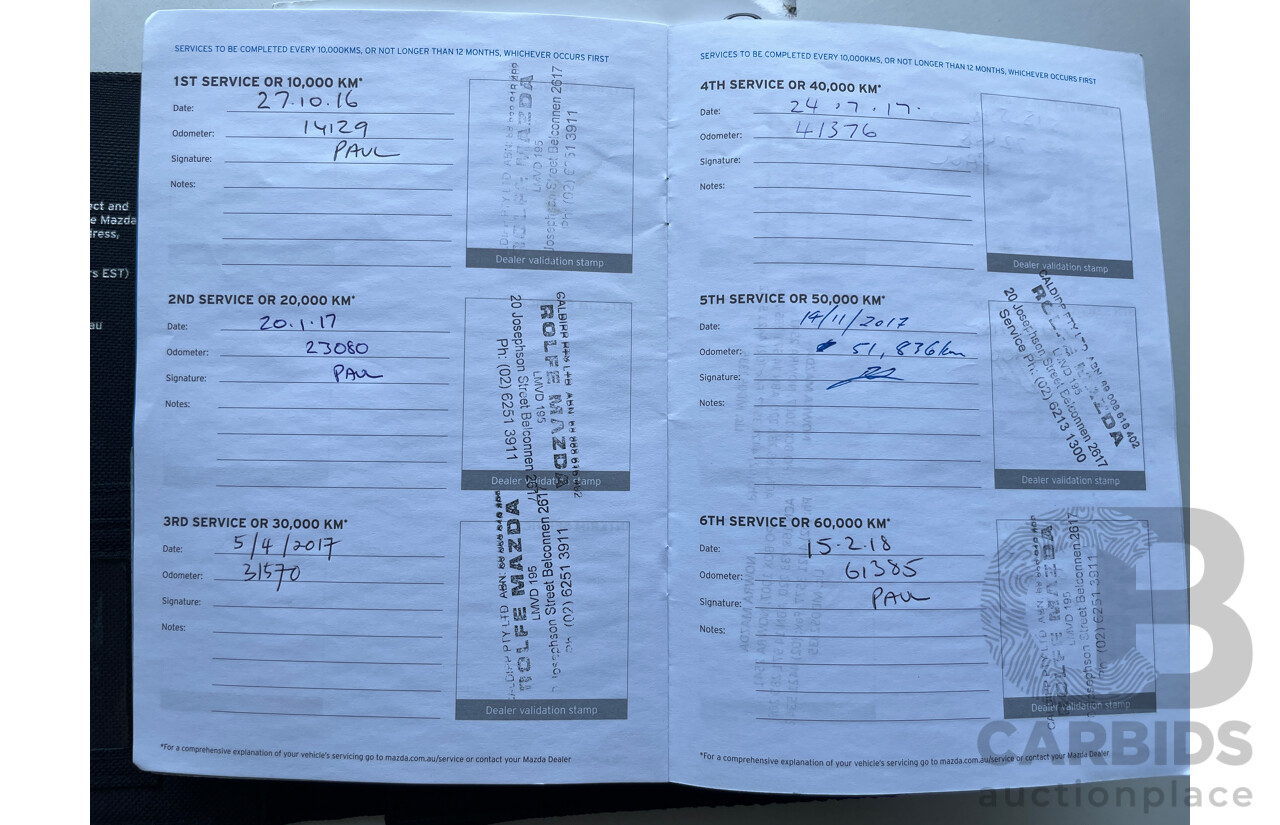 ct and
e Mazda
ress,
s EST)
au
SERVICES TO BE COMPLETED EVERY 10,000KMS, OR NOT LONGER THAN 12 MONTHS, WHICHEVER OCCURS FIRST
1ST SERVICE OR 10,000 KM*
Date: 27.10.16
Odometer: 14129
Signature: PAUL
Notes:
MAZDA
LMVD 195
Josephson Street Belconnen 2617
Dealer validation stamp
2ND SERVICE OR 20,000 KM*
Date: 20.1.17
Odometer: 23080
Signature: PAUL
Notes:
ROLFE MAZDA
LMVD 195
20 Josephson Street Belconnen 2617
Ph: (02) 6251 3911
Dealer validation stamp
3RD SERVICE OR 30,000 KM*
Date: 5/4/2017
Odometer: 31570
Signature:
Notes:
ROLFE MAZDA
LMVD 195
Josephson Street Belconnen 2617
(02) 6251 3911
Dealer validation stamp
*For a comprehensive explanation of your vehicle's servicing go to mazda.com.au/service or contact your Mazda Dealer
SERVICES TO BE COMPLETED EVERY 10,000KMS, OR NOT LONGER THAN 12 MONTHS, WHICHEVER OCCURS FIRST
4TH SERVICE OR 40,000 KM*
Date: 24.7.17.
Odometer: 41376
Signature:
Notes:
Dealer validation stamp
5TH SERVICE OR 50,000 KM*
Date: 14/11/2017
Odometer: 51,836km
Signature:
Notes:
CALDIRE PTY LTD ABN 80 008 616 402
ROLFE MAZDA
LMVD 195
20 Josephson Street Belconnen 2617
Service Ph: (02) 6213 1300
Dealer validation stamp
6TH SERVICE OR 60,000 KM*
Date: 15.2.18
Odometer: 61385
Signature: PAUL
Notes:
ROLFE MAZDA
LMVD 195
Josephson Street Belconnen 2617
Ph: (02) 6251 3911
Dealer validation stamp
*For a comprehensive explanation of your vehicle's servicing go to mazda.com.au/service or contact your Mazda Dealer
B
CARBIDS
auctionplace